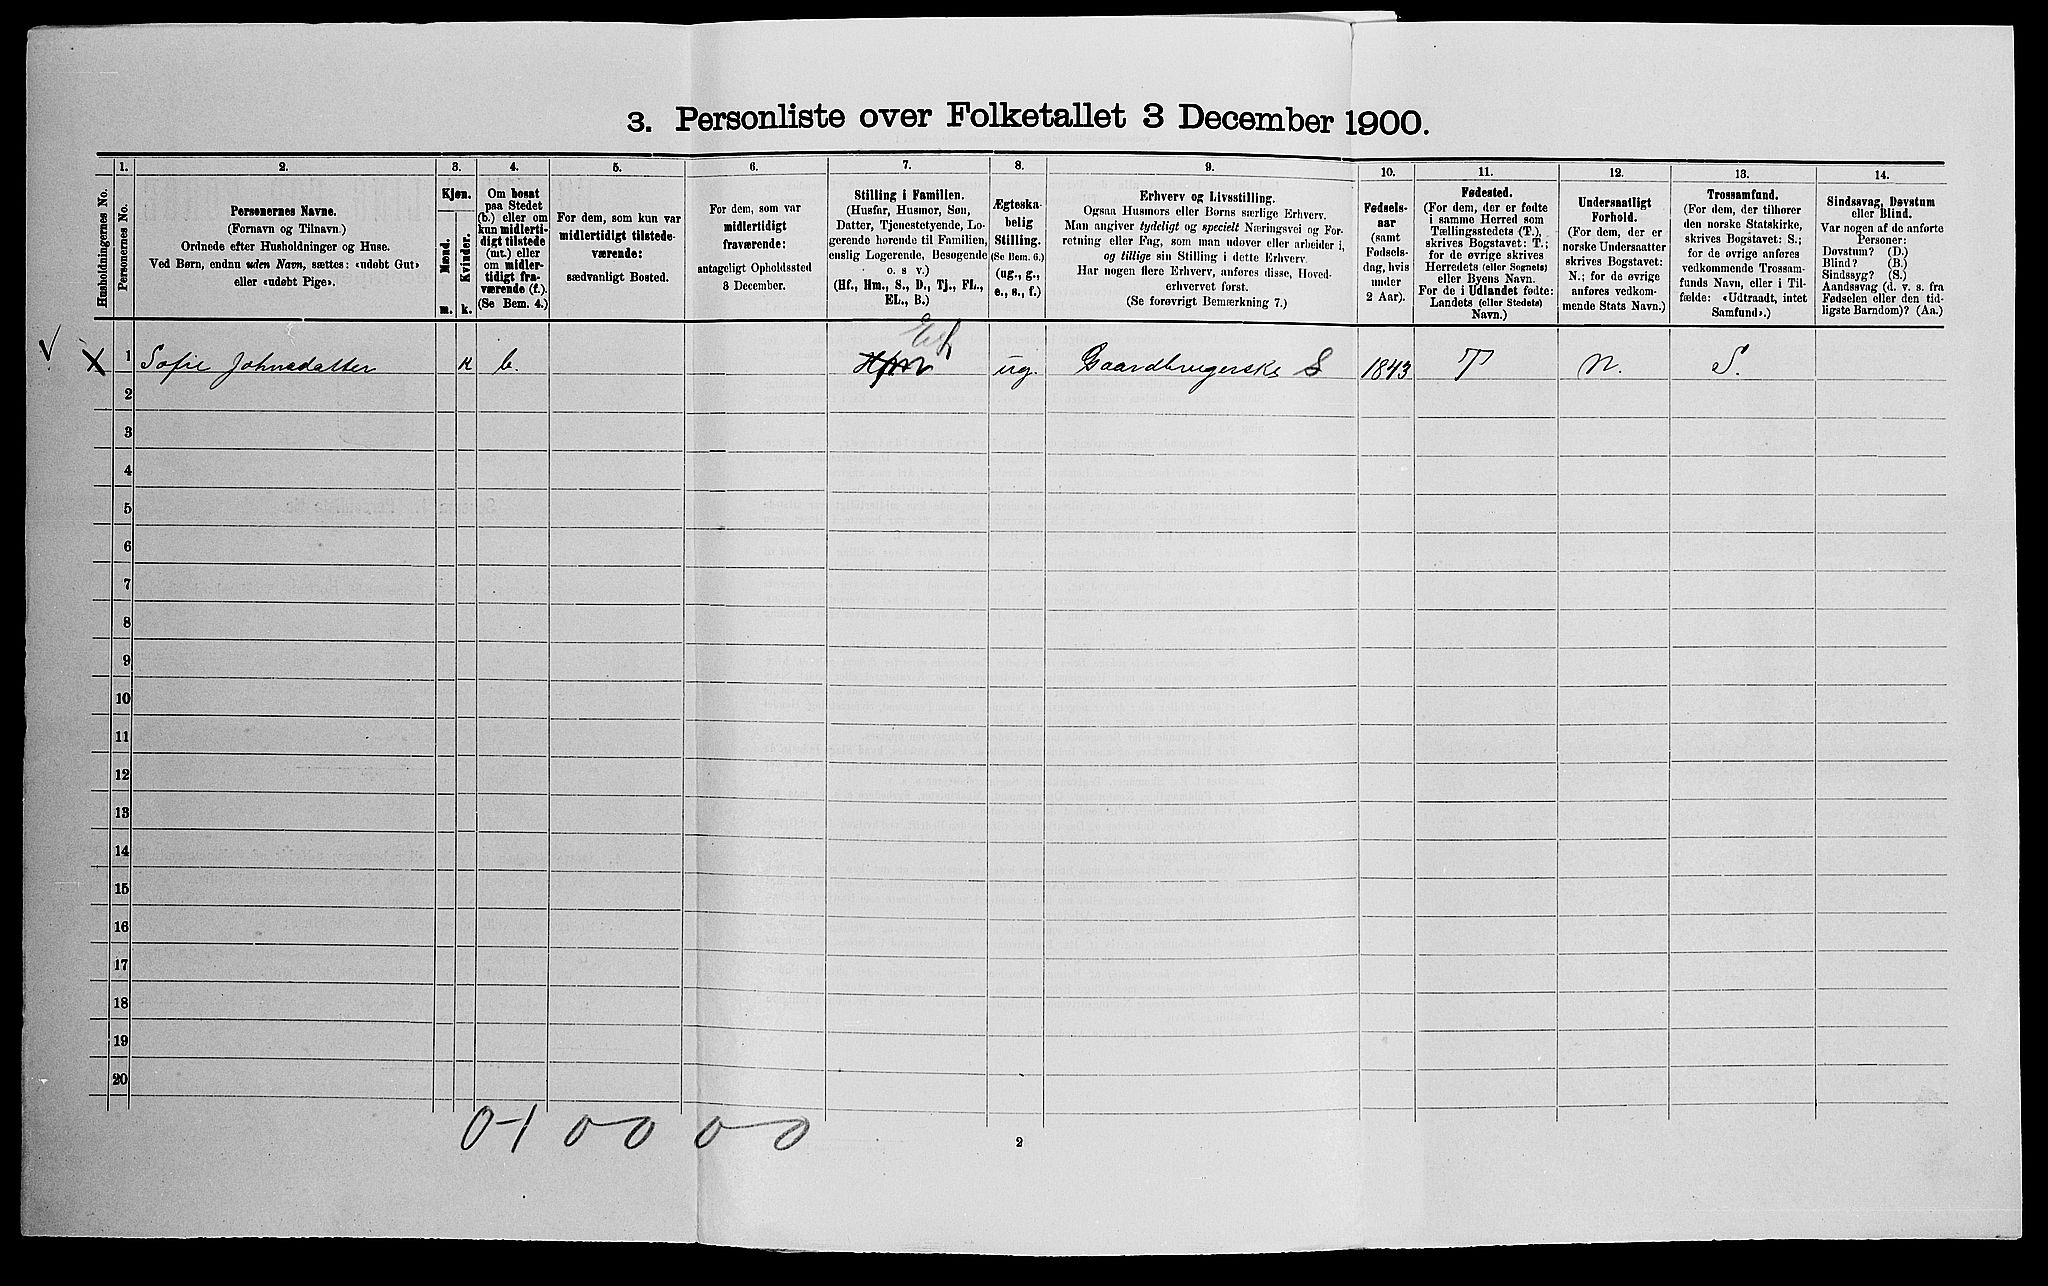 3. Personliste over Folketallet 3 December 1900.
Husholdningernes No.
1.
Personernes No.
2.
Personernes Navne.
(Fornavn og Tilnavn.)
Ordnede efter Husholdninger og Huse.
Ved Børn, endnu uden Navn, sættes: «udøbt Gut»
eller «udøbt Pige».
3.
Kjøn.
Mænd.
Kvinder.
m.
k.
4.
Om bosat
paa Stedet
(b.) eller om
kun midlerti-
digt tilstede
(mt.) eller
om midler-
tidigt fra-
værende (f.).
(Se Bem. 4.)
5.
For dem, som kun var
midlertidigt tilstede-
værende:
sædvanligt Bosted.
6.
For dem, som var
midlertidigt
fraværende:
antageligt Opholdssted
3 December.
7.
Stilling i Familien.
(Husfar, Husmor, Søn,
Datter, Tjenestetyende, Lo-
gerende hørende til Familien,
enslig Logerende, Besøgende
o. s v.)
(Hf., Hm., S., D., Tj., FL.,
EL., B.)
8.
Ægteska-
belig
Stilling.
(Se Bem. 6.)
(ug., g.,
e., s., f.)
9.
Erhverv og Livsstilling.
Ogsaa Husmors eller Børns særlige Erhverv.
Man angiver tydeligt og specielt Næringsvei og For-
retning eller Fag, som man udøver eller arbeider i,
og tillige sin Stilling i dette Erhverv.
Har nogen flere Erhverv, anføres disse, Hoved-
erhvervet først.
(Se forøvrigt Bemærkning 7.)
10.
Fødsels-
aar
(samt
Fødsels-
dag, hvis
under
2 Aar).
11.
Fødested.
(For dem, der er fødte
i samme Herred som
Tællingsstedets (T.),
skrives Bogstavet: T.;
for de øvrige skrives
Herredets (eller Sognets)
eller Byens Navn.
For de i Udlandet fødte:
Landets (eller Stedets)
Navn.)
12.
Undersaatligt
Forhold.
(For dem, der er
norske Undersaatter
skrives Bogstavet:
N.; for de øvrige
anføres vedkom-
mende Stats Navn.)
13.
Trossamfund.
(For dem, der tilhører
den norske Statskirke,
skrives Bogstavet: S.;
for de øvrige anføres
vedkommende Trossam-
funds Navn, eller i Til-
fælde: «Udtraadt, intet
Samfund».)
14.
Sindssvag, Døvstum
eller Blind.
Var nogen af de anførte
Personer:
Døvstum? (D.)
Blind? (B.)
Sindssyg? (S.)
Aandssvag (d. v. s. fra
Fødselen eller den tid-
ligste Barndom)? (Aa.)
1 Sofie Johnsdatter k b. ug. Gaardbrugerske S 1843 T N. S.
2
3
4
5
6
7
8
9
10
11
12
13
14
15
16
17
18
19
20
0-1 0-0 0-0
2